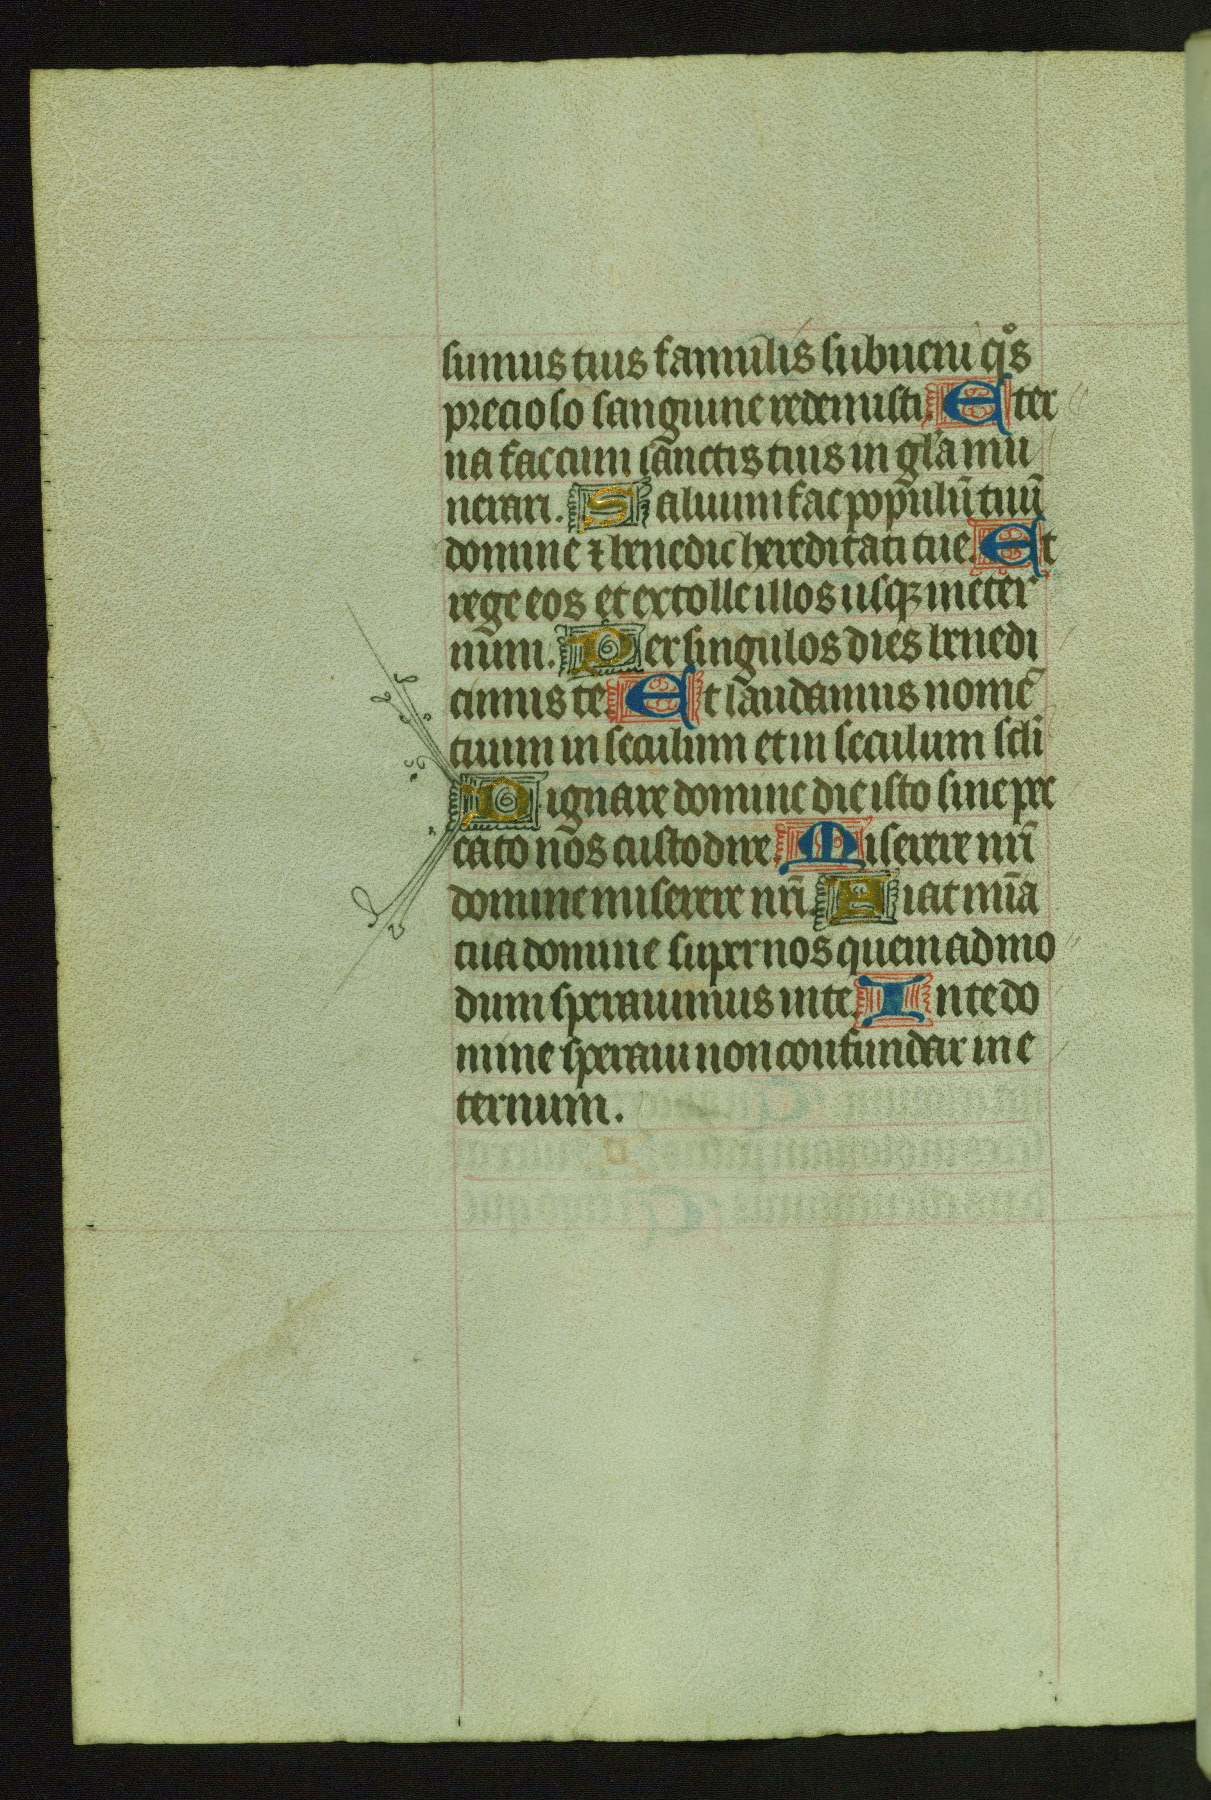 sumus tuis famulis subueni qͦs
precioso sanguine redemisti. Eter
na fac cum sanctis tuis in gl̓a mu
nerari. Saluum fac populū tuū
domine ⁊ benedic hereditati tue. Et
rege eos et extolle illos usqꝫ in eter
num. Per singulos dies benedi
cimus te. Et laudamus nomē
tuum in seculum et in seculum scl̄i
Dignare domine die isto sine pec
cato nos custodire. Miserere nr̄i
domine miserere nr̄i. Fiat mīa
tua domine super nos quemadmo
dum sperauimus in te. In te do
mine speraui non confundar in e
ternum.